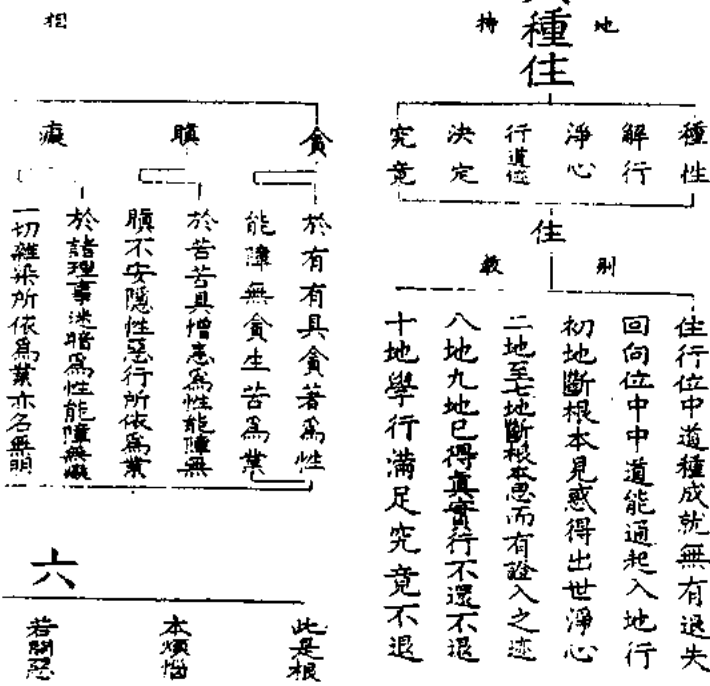 地持
種住
種性
解行
淨心
行道迹
決定
究竟
住
別教
住行位中道種成就無有退失
回向位中中道能通起入地行
初地斷根本見惑得出世淨心
二地至七地斷根本思而有證入之迹
八地九地已得真實行不還不退
十地學行滿足究竟不退
相
貪
瞋
癡
於有有具貪著爲性
能障無貪生苦爲業
於苦苦具憎恚爲性能障無
瞋不安隱性惡行所依爲業
於諸理事迷暗爲性能障無癡
一切雜染所依爲業亦名無明
六
此是根
本煩惱
若開惡